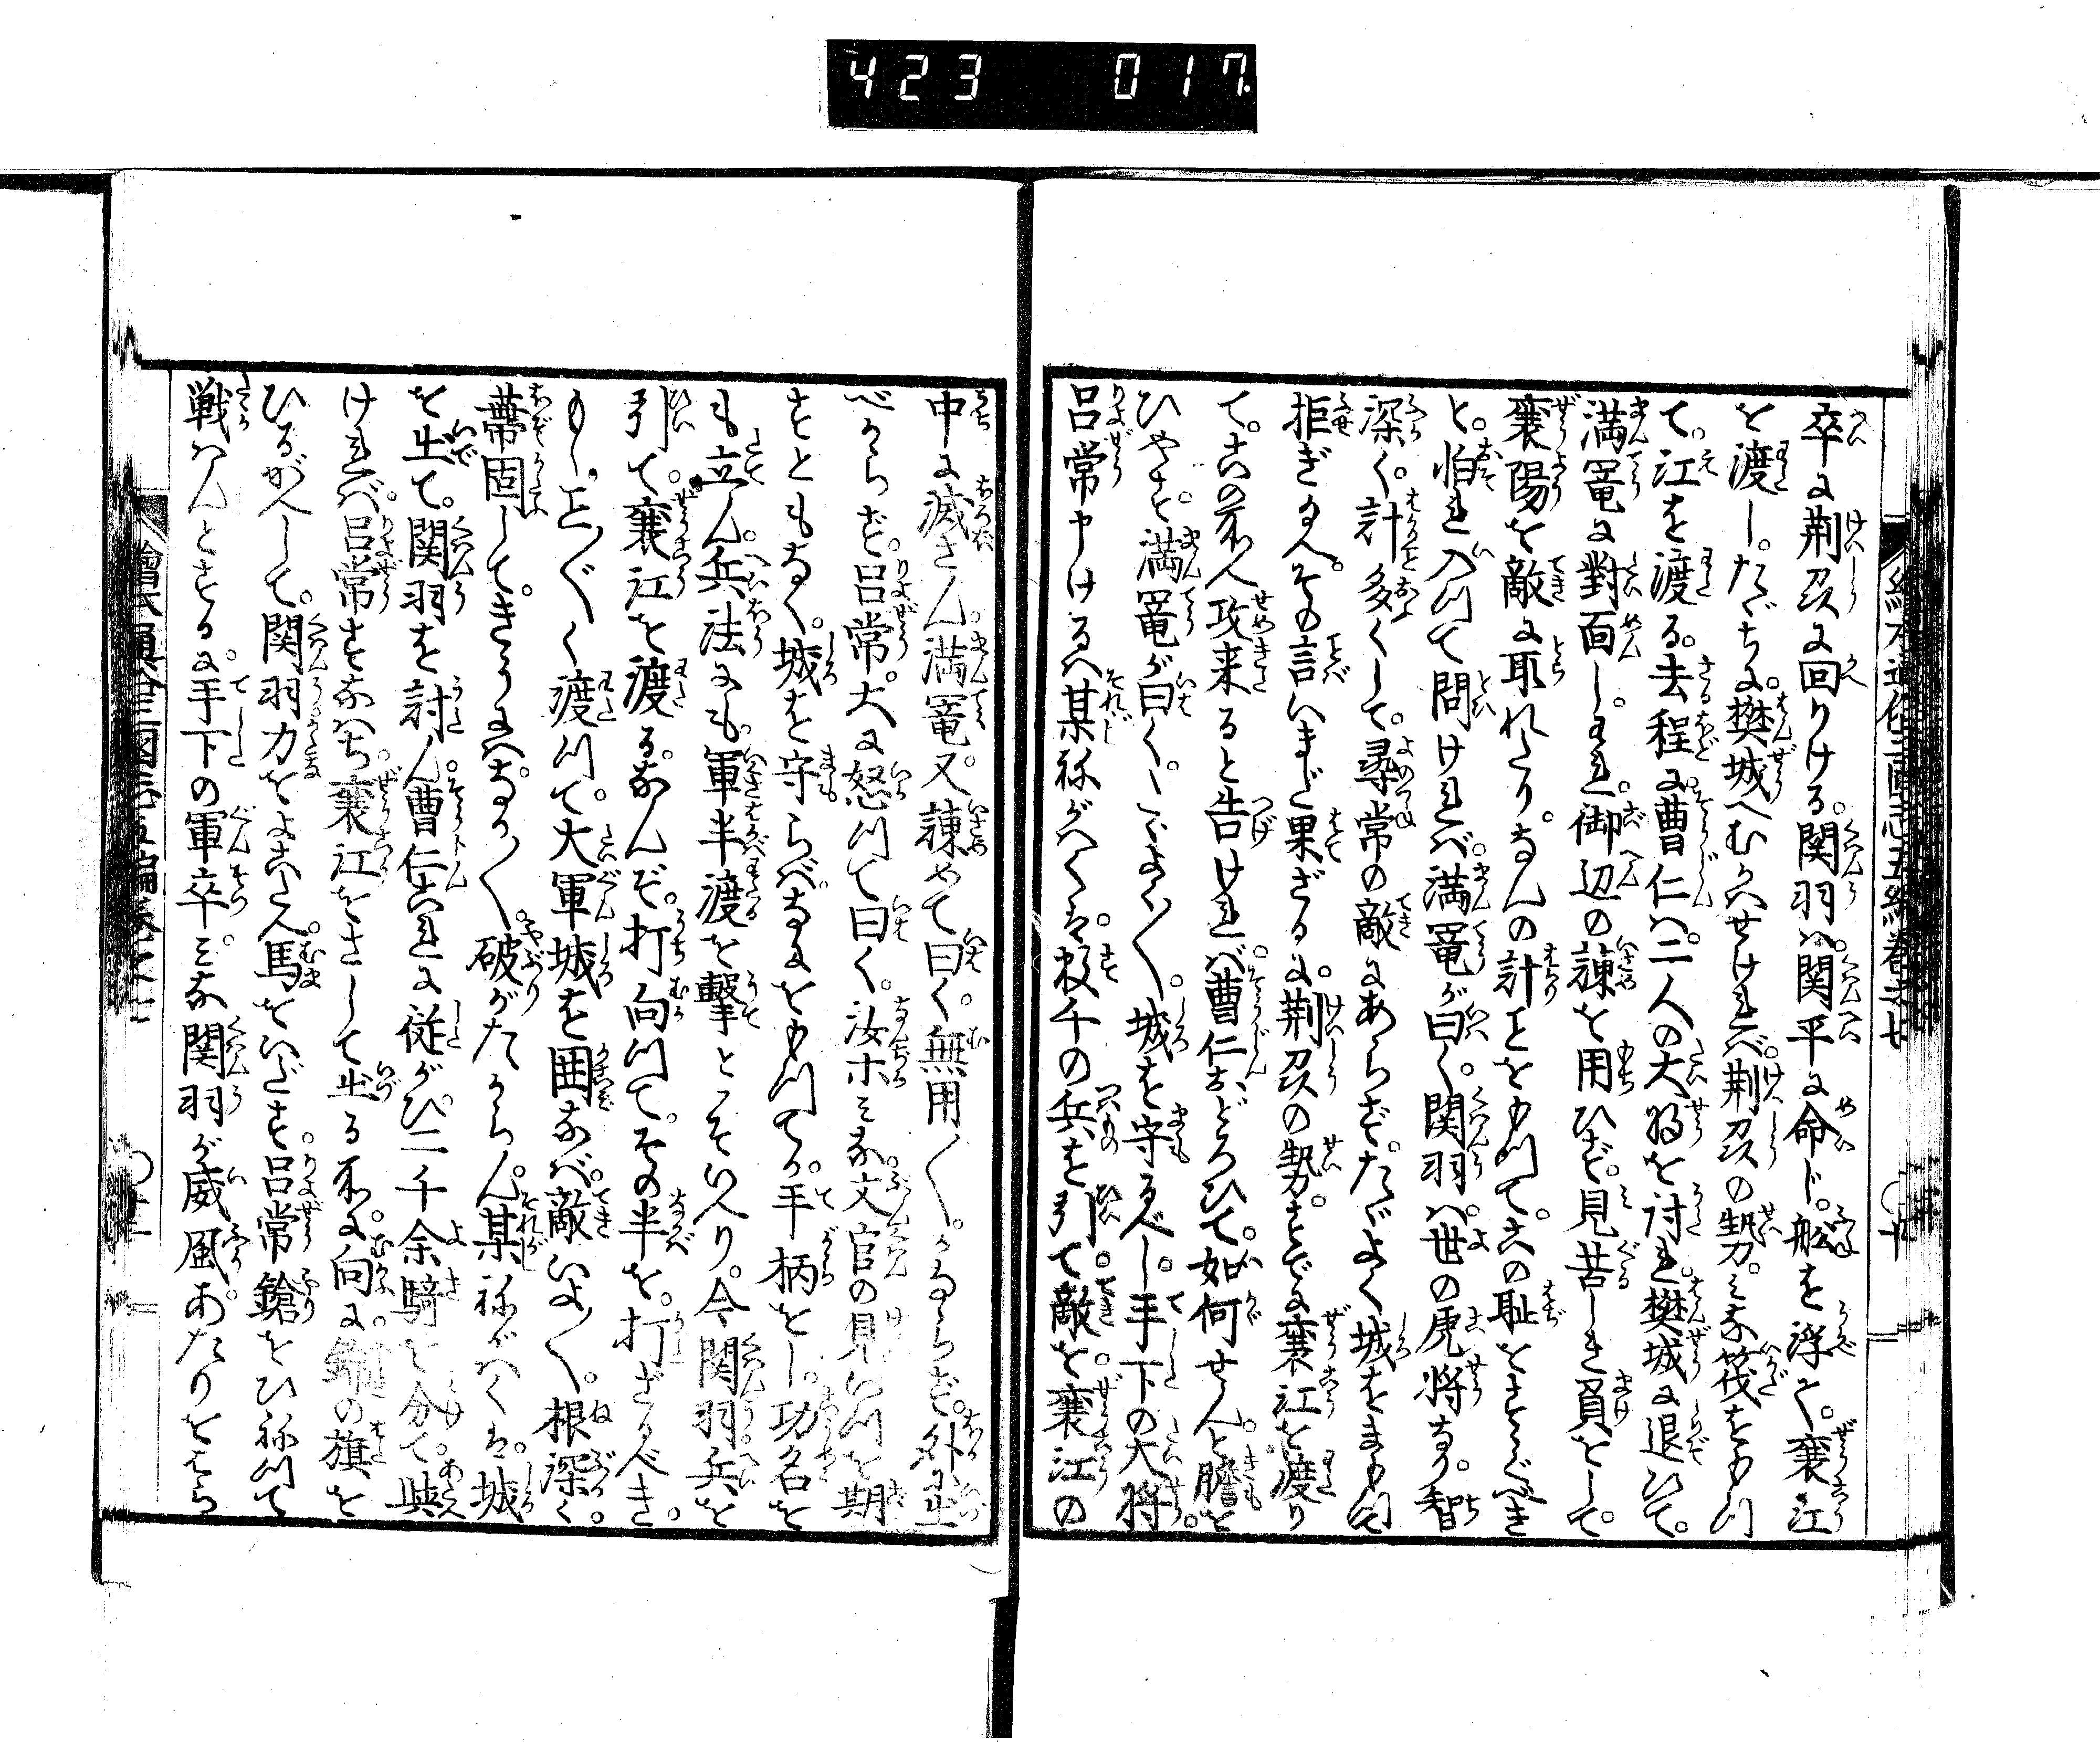 423 017
卒に荆刕に回りける。関羽ハ関平に命じ。舩を浮て。襄江
を渡し。たゞちに。樊城へむかハせけれバ。荆刕の勢。ミな筏をもつ
て。江を渡る。去程に。曹仁ハ。二人の大将を討れ。樊城に退ひて。
満寵に對面しけれ。御辺の諫を用ひず。見苦しき負をして。
襄陽を敵に取れたり。なんの計ことをもつて。此の恥をすゝぐべき
と。怕れ入つて問けれバ。満寵が曰く。関羽ハ世の虎将なり。智
深く。計多くして。尋常の敵にあらず。たゞよく城をまもつて
拒ぎ給へ。その言いまだ果ざるに。荆刕の勢。すでに襄江を渡り
て。此の所へ攻来ると告けれバ。曹仁おどろひて。如何せんと。膽を
ひやす。満寵が曰く。こゝよく〳〵。城を守るべし。手下の大将。
呂常申けるハ某ねがハくハ。数千の兵を引て敵を。襄江の
中に滅さん。満寵又。諫めて曰く。無用〳〵。かならず。外に出
べからず。呂常。大に怒つて曰く。汝ホミな文官の見いつを期
すともなく。城を守らバ。なにをもつてか。手柄をし。功名を
も立ん。兵法にも。軍半渡を撃とこそいへり。今関羽兵を
引て。襄江を渡る。なんぞ。打向つて。その半を。打ざるべき。
もし。ことごとく渡つて。大軍城を囲なバ。敵いよ〳〵。根深く。
蔕固して。きうにハなか〳〵。破がたからん。某ねがハくハ。城
を出て。関羽を討ん。曹仁これに従がひ二千余騎を分て與
けれバ。呂常すなハち。襄江をさして出る所に。向に。錦の旗を
ひるがへして。関羽刀をよこたへ。馬をいだす。呂常鎗をひねつて
戦ハんとするに。手下の軍卒。ミな関羽が威風。あたりをはら